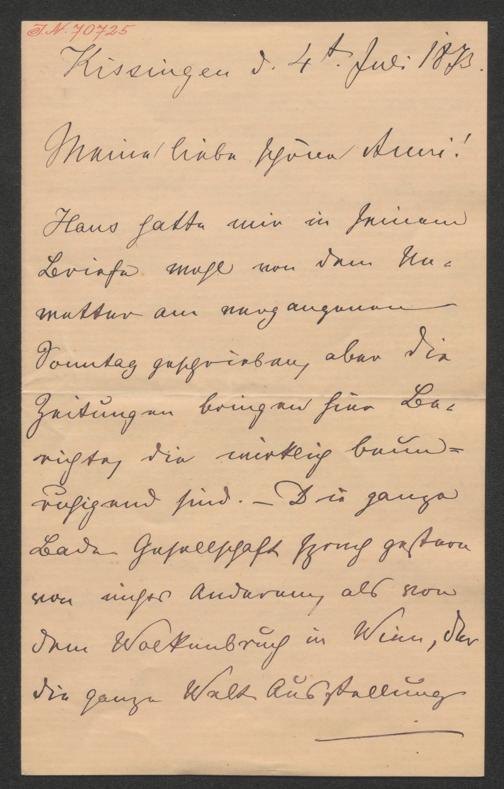 J.N. 70725
Kissingen d. 4t. Juli 1873.
Meine liebe schöne Anni!
Hans hatte mir in seinem
Briefe wohl von dem Un-
wetter am vergangenen
Sonntag geschrieben, aber die
Zeitungen bringen hier Be-
richte, die wirklich beun-
ruhigend sind. – Die ganze
Bade Gesellschaft sprach gestern
von nichts Anderem, als von
dem Wolkenbruch in Wien, der
die ganze Welt Ausstellung